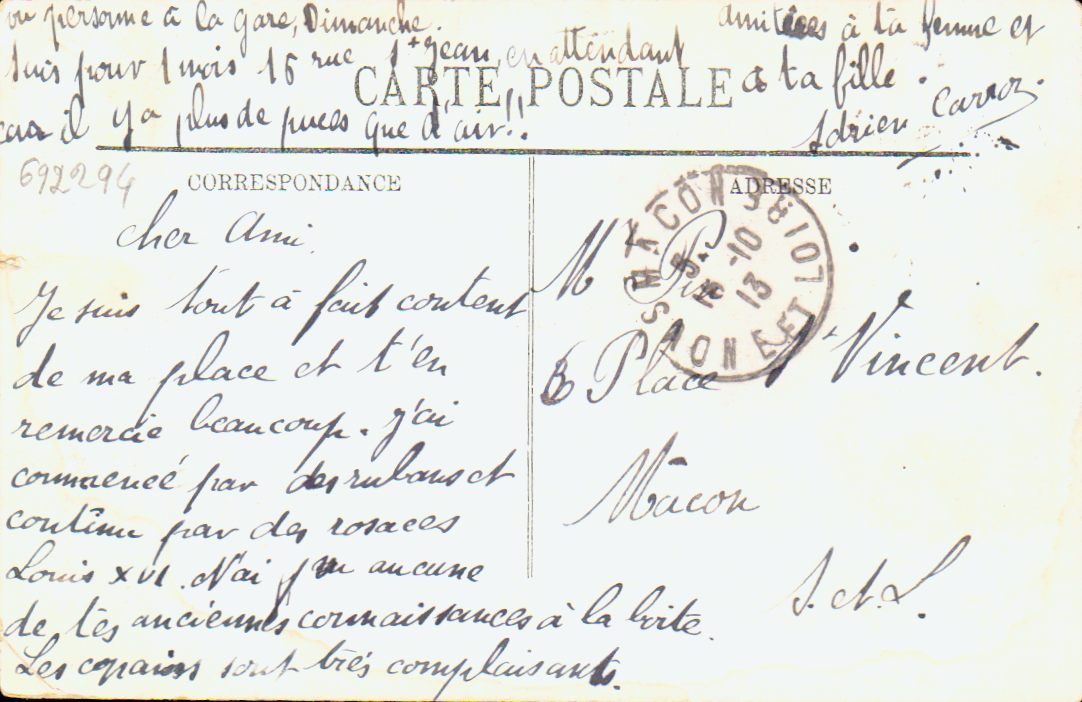 vu personne à la gare, Dimanche.
suis pour 1 mois 16 rue St Jean, en attendant
car il y a plus de puces que d'air!!
amitiées à ta femme et
à ta fille.
Adrien
CARTE POSTALE
692294
CORRESPONDANCE
ADRESSE
Cher Ami.
Je suis tout à fait content
de ma place et t'en
remercie beaucoup. J'ai
commencé par des rubans et
continu par des rosaces
Louis XVI. N'ai vu aucune
de tes anciennes connaissances à la boite.
Les copains sont très complaisants.
MACON
SAONE ET LOIRE
15-10
13
Mr
6 Place St Vincent.
Mâcon
S. et L.